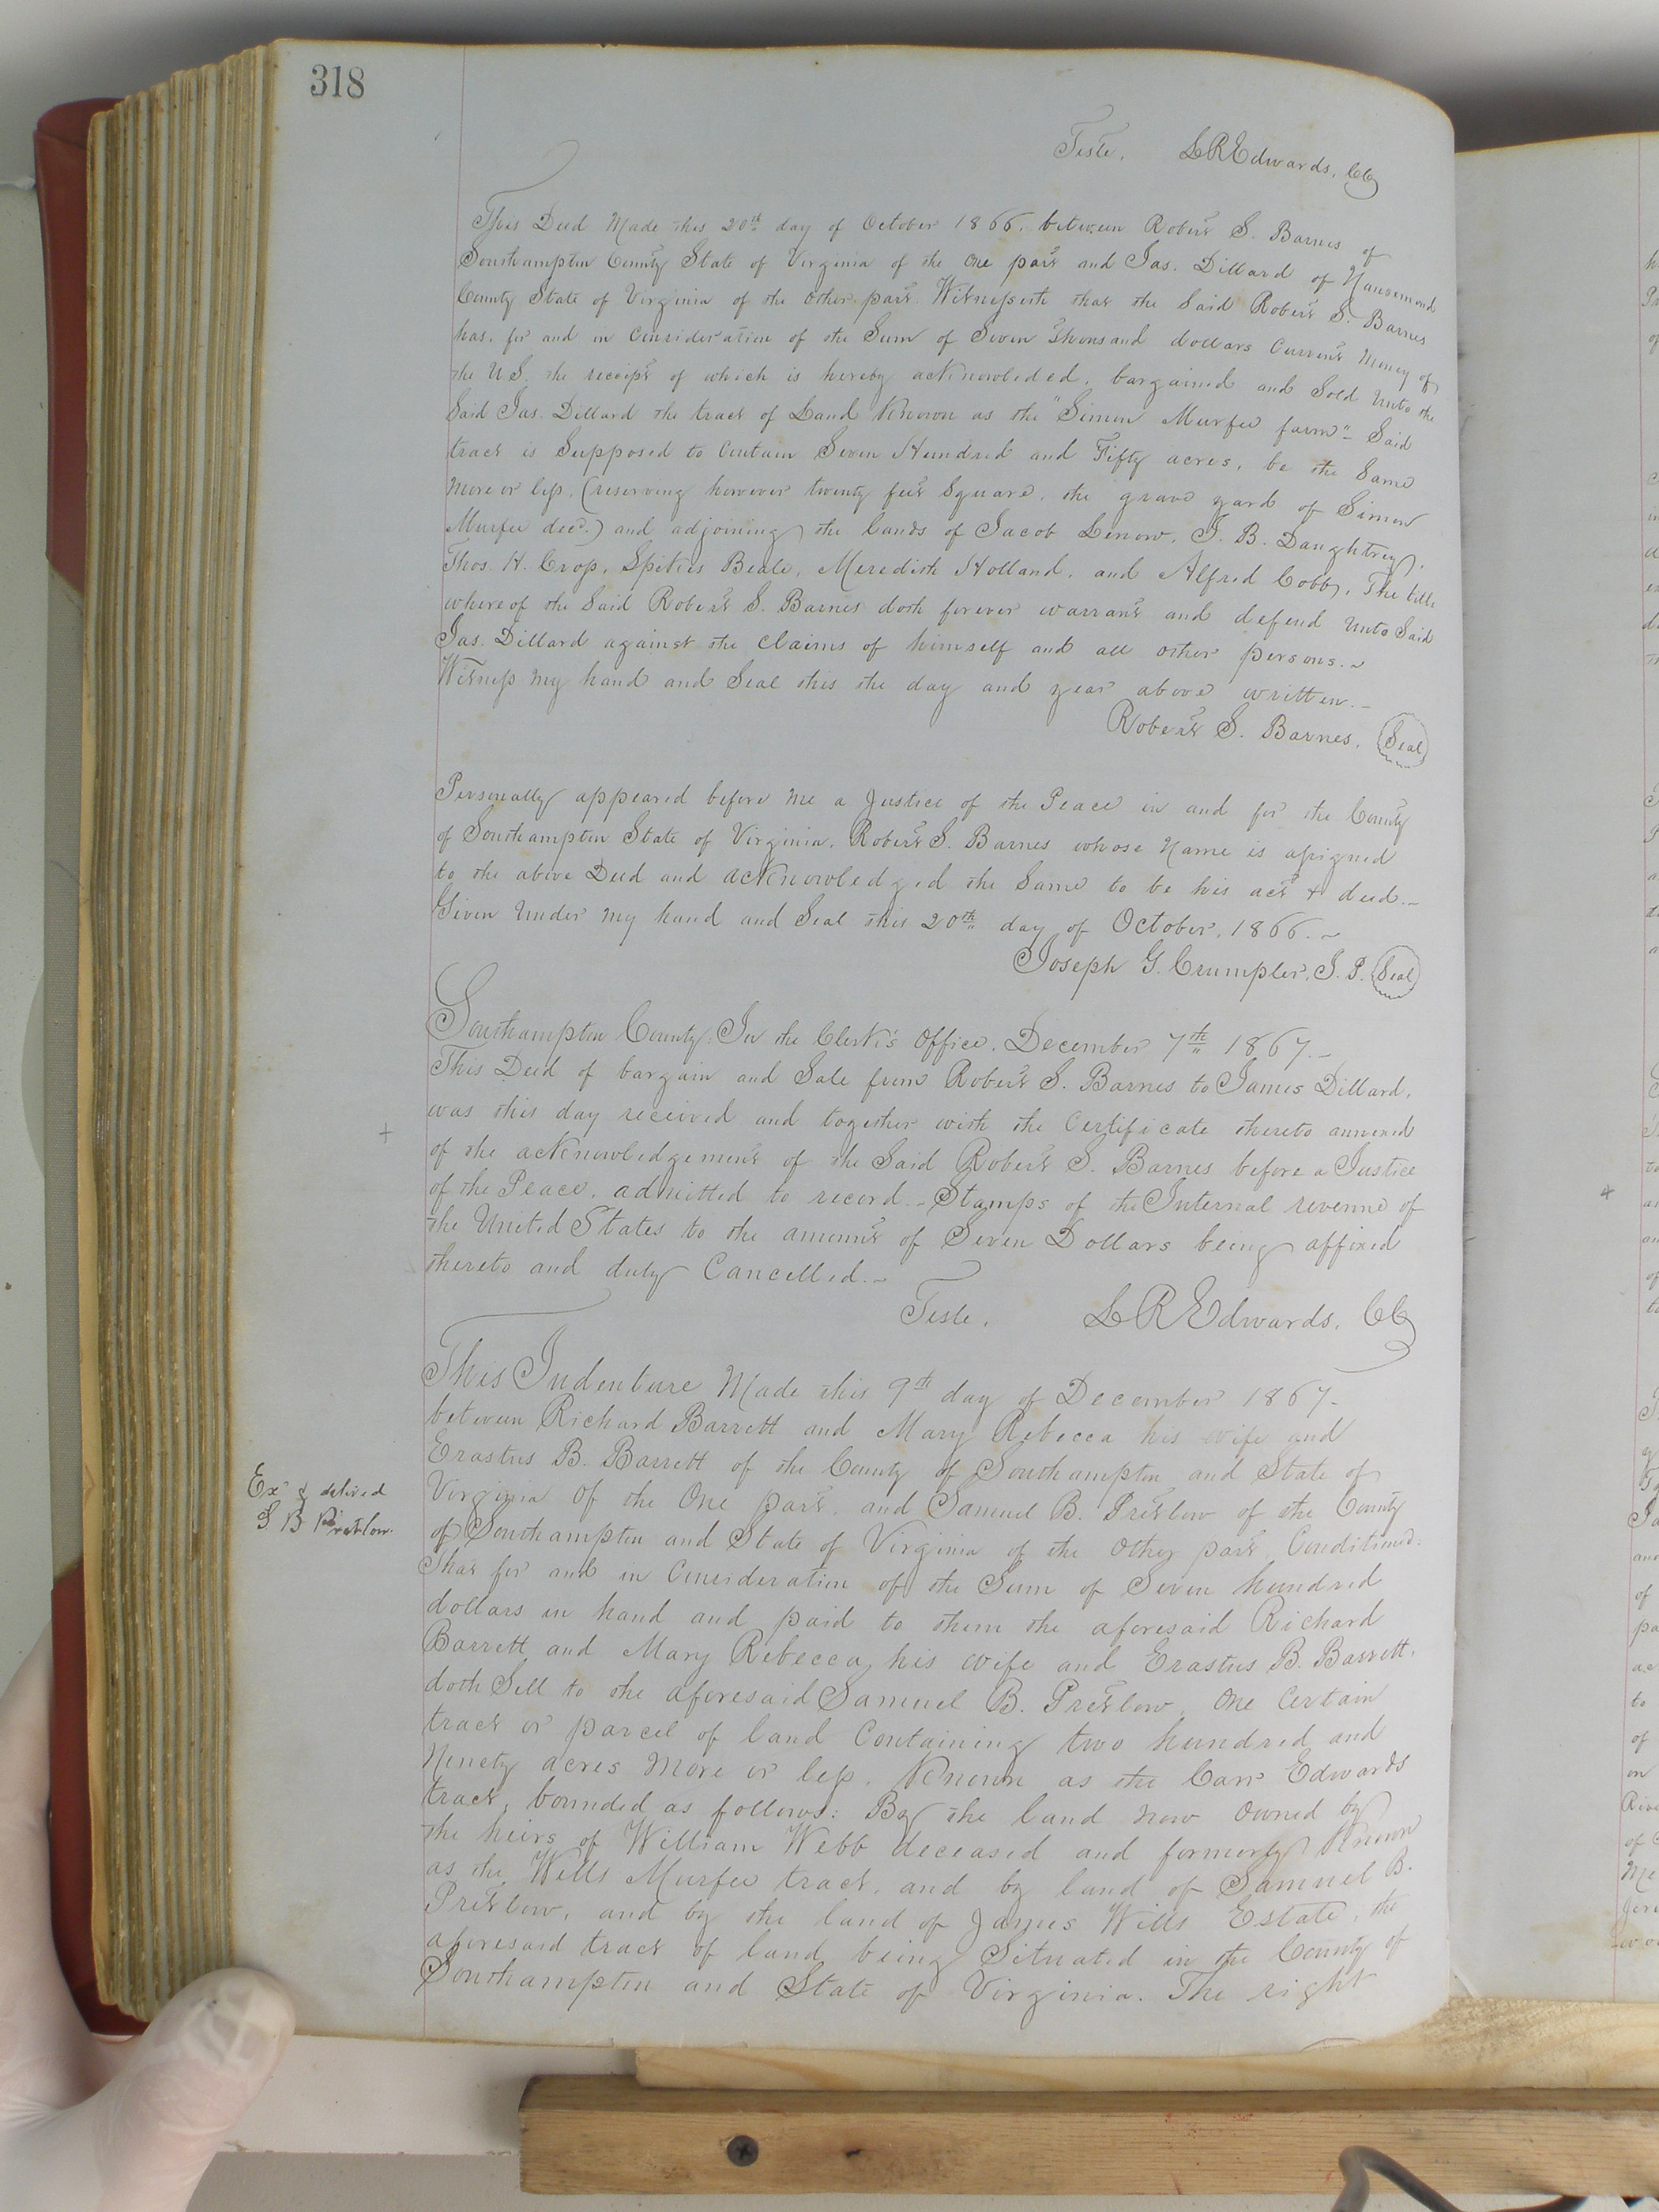 318
Teste, LREdwards, CC
This Deed Made this 20th day of October 1866. between Robert S. Barnes of
Southampton County State of Virginia of the one part and Jas. Dillard of Nansemond
County State of Virginia of the other part. Witnesseth that the Said Robert S. Barnes
has, for and in Consideration of the Sum of Seven thousand dollars Current Money of
the U.S. the receipt of which is hereby acknowleded, bargained and Sold Unto the
Said Jas. Dillard the tract of Land Known as the "Simon Murfee farm" - Said
tract is Supposed to Contain Seven Hundred and Fifty acres, be the Same
More or less, (reserving however twenty feet Square, the grave yard of Simon
Murfee decd.) and adjoining the lands of Jacob Lenow, J. B. Daughtrey,
Thos. H. Cross, Spitus Beale, Meredith Holland, and Alfred Cobb, The title
whereof the Said Robert S. Barnes doth forever warrant and defend Unto Said
Jas. Dillard against the Claims of himself and all other persons. ~
Witness My hand and Seal this the day and year above written. -
Robert S. Barnes. Seal
Personally appeared before Me a Justice of the Peace in and for the County
of Southampton State of Virginia. Robert S. Barnes whose Name is assigned
to the above Deed and acknowledged the Same to be his act & deed. -
Given Under My hand and Seal this 20th day of October, 1866. ~
Joseph G. Crumpler, J. P. Seal
Southampton County. In the Clerk's Office. December 7th 1867. -
This Deed of bargain and Sale from Robert S. Barnes to James Dillard,
was this day received and together with the Certificate thereto annexed
of the acknowledgement of the Said Robert S. Barnes before a Justice
of the Peace, admitted to record. - Stamps of the Internal revenue of
the United States to the amount of Seven Dollars being affixed
thereto and duly Cancelled. ~
Teste. LREdwards, CC
This Indenture Made this 9th day of December 1867 -
between Richard Barrett and Mary Rebecca his wife and
Erastus B. Barrett of the County of Southampton and State of
Virginia Of the One part, and Samuel B. Pretlow of the County
of Southampton and State of Virginia of the Other part Conditioned:
That for and in Consideration of the Sum of Seven hundred
dollars in hand and paid to them the aforesaid Richard
Barrett and Mary Rebecca, his wife and Erastus B. Barrett,
doth Sell to the aforesaid Samuel B. Pretlow, One Certain
tract or parcel of land Containing two hundred and
Ninety acres More or less. Known as the Carr Edwards
tract, bounded as follows: By the land now owned by
the heirs of William Webb deceased and formerly Known
as the Wills Murfee tract, and by land of Samuel B.
Pretlow, and by the land of James Wills Estate, the
aforesaid tract of land being Situated in the County of
Southampton and State of Virginia. The right
Ex & delived
S B Pretlow.